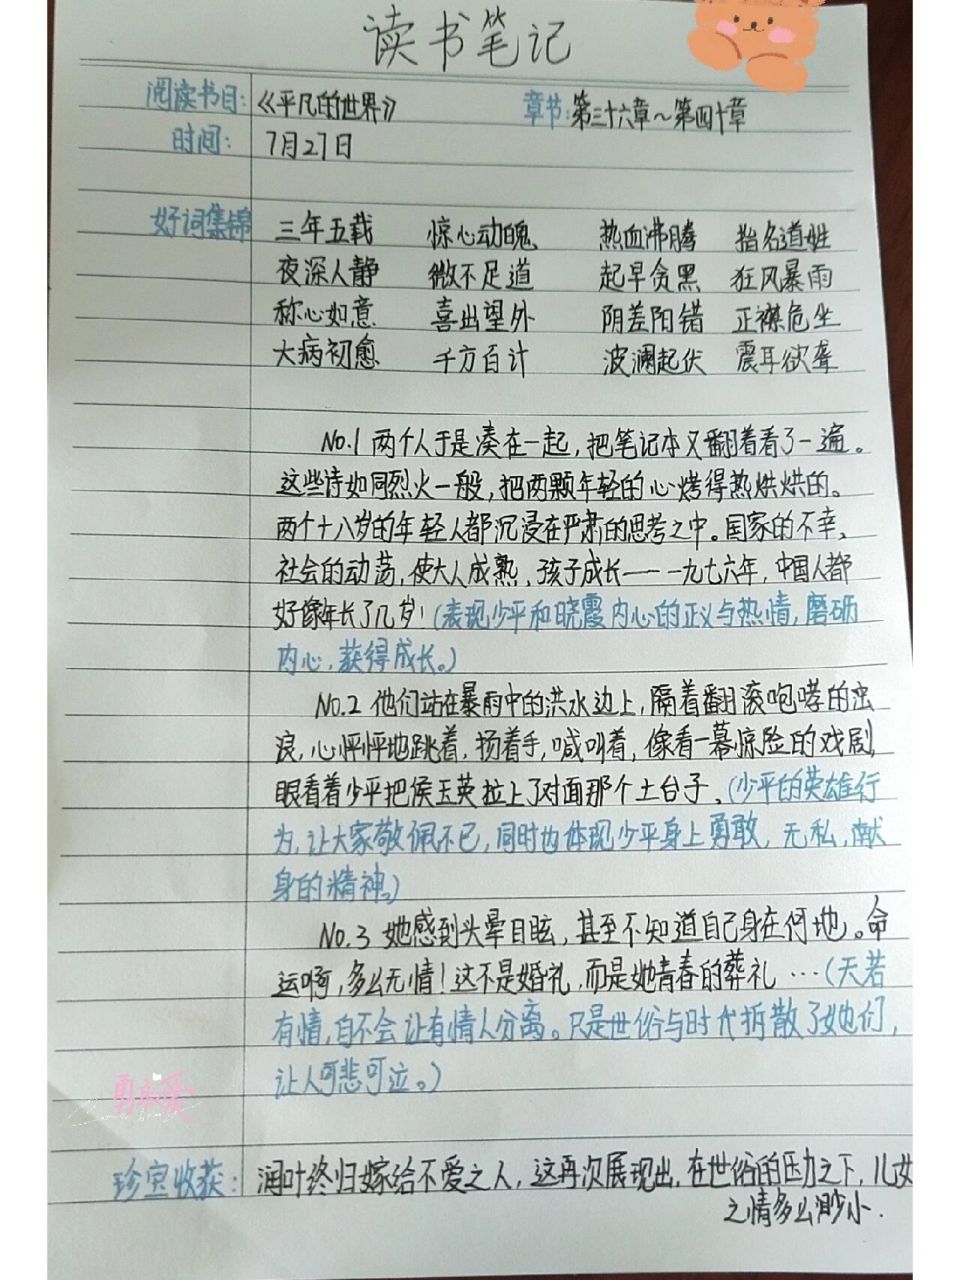 读书笔记
阅读书目: 《平凡的世界》 章节: 第三十六章~第四十章
时间: 7月27日
好词集锦 三年五载 惊心动魄 热血沸腾 指名道姓
夜深人静 微不足道 起早贪黑 狂风暴雨
称心如意 喜出望外 阴差阳错 正襟危坐
大病初愈 千方百计 波澜起伏 震耳欲聋
No.1 两个人于是凑在一起,把笔记本又翻着看了一遍。
这些诗如同烈火一般,把两颗年轻的心烤得热烘烘的。
两个十八岁的年轻人都沉浸在严肃的思考之中。国家的不幸、
社会的动荡,使大人成熟,孩子成长——一九七六年,中国人都
好像年长了几岁!(表现少平和晓霞内心的正义与热情,磨砺
内心,获得成长。)
No.2 他们站在暴雨中的洪水边上,隔着翻滚咆哮的浊
浪,心怦怦地跳着,扬着手,喊叫着,像看一幕惊险的戏剧,
眼看着少平把侯玉英拉上了对面那个土台子、(少平的英雄行
为,让大家敬佩不已,同时也体现少平身上勇敢,无私,献
身的精神。)
No.3 她感到头晕目眩,甚至不知道自己身在何地。命
运啊,多么无情!这不是婚礼,而是她青春的葬礼…(天若
有情,自不会让有情人分离。只是世俗与时代拆散了她们,
让人可悲可泣。)
珍宝收获: 润叶终归嫁给不爱之人,这再次展现出,在世俗的压力之下,儿女
之情多么渺小.